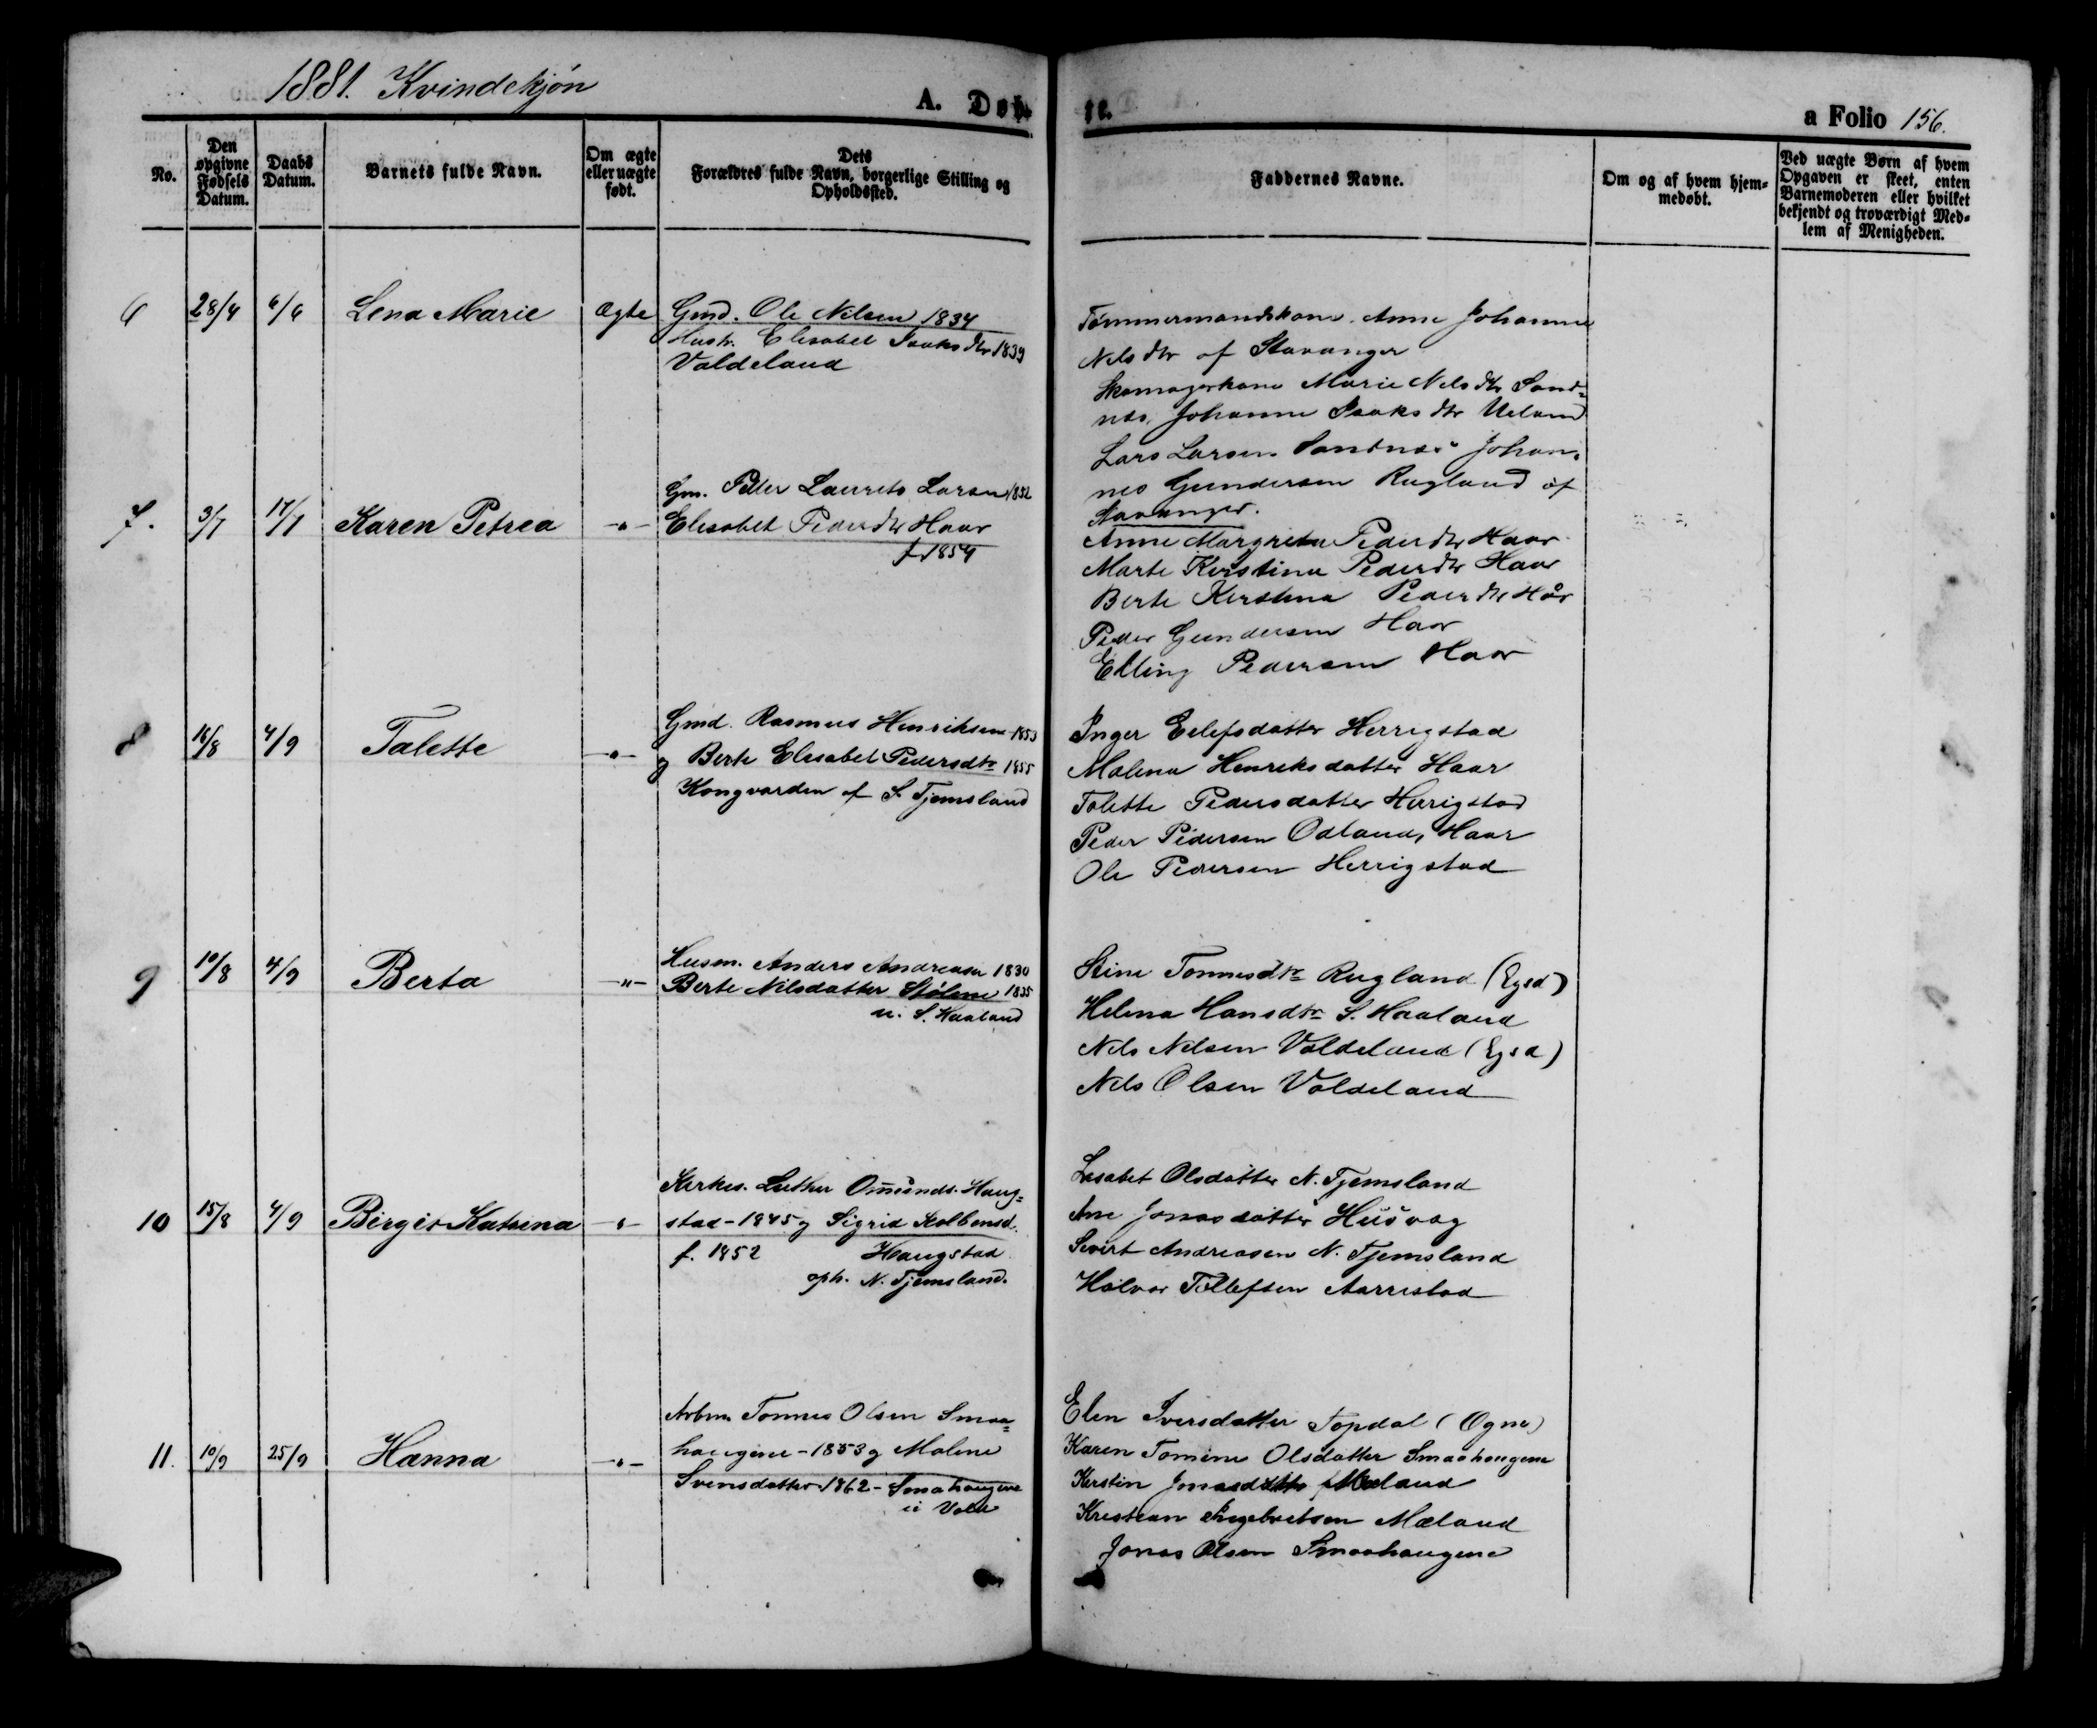 1881. Kvindekjøn
A. Døb-
te.
a Folio 156.
No.
Den opgivne Fødsels Datum.
Daabs Datum.
Barnets fulde Navn.
Om ægte eller uægte født.
Dets Forældres fulde Navn, borgerlige Stilling og Opholdssted.
Faddernes Navne.
Om og af hvem hjem=
medøbt.
Ved uægte Børn af hvem
Opgaven er skeet, enten
Barnemoderen eller hvilket
bekjendt og troværdigt Med=
lem af Menigheden.
6 28/4 6/6 Lena Marie Ægte Gmd. Ole Nilsen 1834
Hustr. Elisabet Isaksdtr 1839
Valdeland
Tømmermandskone Anne Johanne
Nilsdtr af Stavanger
Skomagerkone Marie Nilsdtr Sand=
næs, Johanne Isaksdtr Ueland
Lars Larsen Sandnæs Johan-
nes Gundersen Rugland af
Stavanger.
7. 3/7 17/7 Karen Petrea -"- Gm. Peder Laurits Larsen 1852
Elisabet Pedersdtr Haar
f. 1854
Anne Margrete Pedersdtr Haar
Marte Kirstina Pedersdtr Haar
Berte Kirstina Pedersdtr Hår
Peder Gundersen Haar
Elling Pedersen Haar
8 16/8 4/9 Talette -"- Gmd. Rasmus Henriksen 1853
g Berte Elisabet Pedersdtr 1855
Kongvarden af S. Tjemsland
Inger Eilefsdatter Herrigstad
Malena Henriksdatter Haar
Talette Pedersdatter Herrigstad
Peder Pedersen Odland, Haar
Ole Pedersen Herrigstad
9 10/8 4/9 Berta -"- Husm. Anders Andreasen 1830
Berte Nilsdatter Stølene 1835
u. S. Haaland
Stine Tonnesdtr Rugland (Egsd)
Helena Hansdtr S. Haaland
Nils Nilsen Valdeland (Egsd)
Nils Olsen Valdeland
10 15/8 4/9 Birgit Katrina -"- Kirkes. Luther Omunds. Haug=
stad - 1845 g Sigrid Kolbensd.
f. 1852 Haugstad
oph. N. Tjemsland.
Lisabet Olsdatter N. Tjemsland
Ane Jonasdatter Husvag
Sivert Andreasen N. Tjemsland
Halvor Tollefsen Aarrestad
11. 10/9 25/9 Hanna -"- Arbm. Tonnes Olsen Smaa=
haugene - 1853 g Malene
Svensdatter 1862 - Smahaugene
u Vold
Elen Iversdatter Topdal (Ogne)
Karen Tomine Olsdatter Smaahaugene
Kirstin Jonasdatter Mæland
Kristian Engebretsen Mæland
Jonas Olsen Smaahaugene